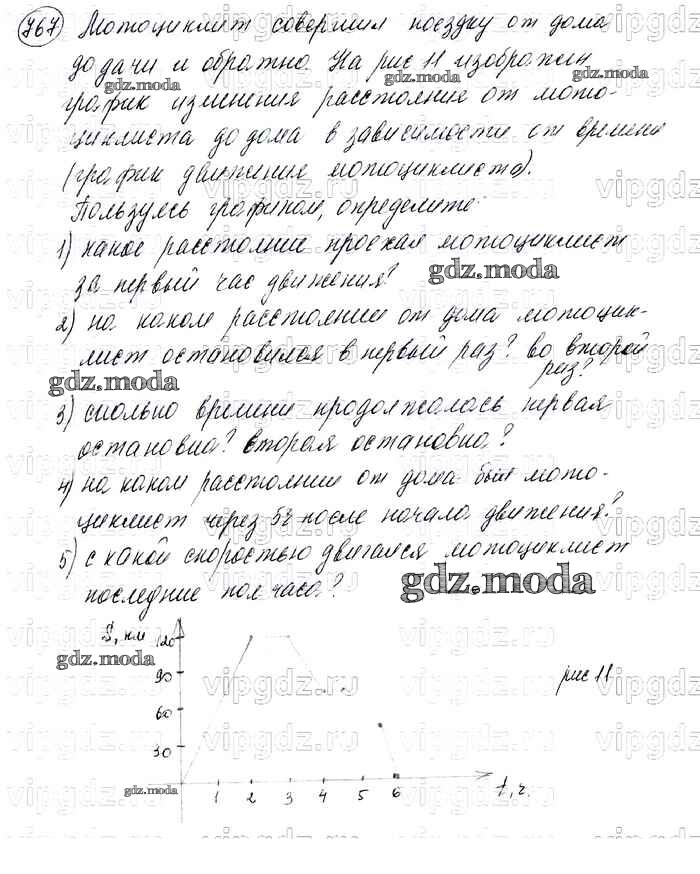 767 Мотоциклист совершил поездку от дома
до дачи и обратно. На рис 11 изображен
график изменения расстояния от мото-
циклиста до дома в зависимости от времени
(график движения мотоциклиста).
Пользуясь графиком, определите:
1) какое расстояние проехал мотоциклист
за первый час движения?
2) на каком расстоянии от дома мотоцик-
лист остановился в первый раз? во второй
раз?
3) сколько времени продолжалась первая
остановка? вторая остановка?
4) на каком расстоянии от дома был мото-
циклист через 5ч после начала движения?
5) с какой скоростью двигался мотоциклист
последние пол часа?
S, км
120
90
60
30
1 2 3 4 5 6 t, ч.
рис 11
gdz.moda
vipgdz.ru